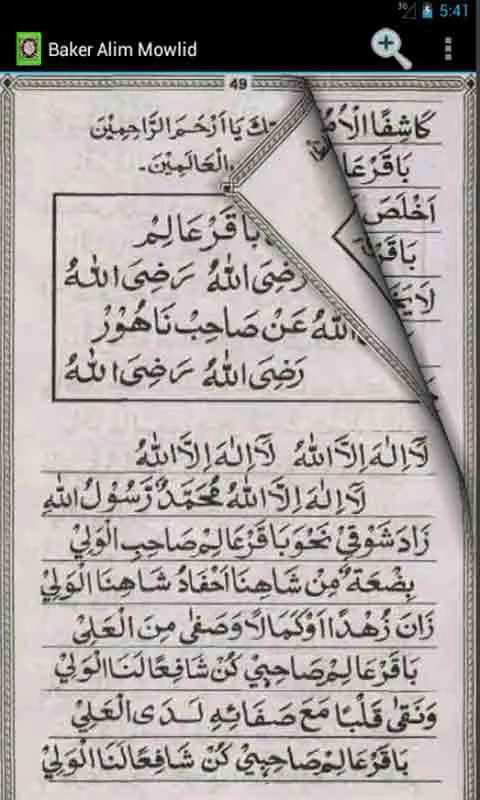 5:41
Baker Alim Mowlid
49
كَاشِفًا الْاُمُ
تِكَ يَا اَرْحَمَ الرَّاحِمِيْنَ
بَاقَرْ عَا
الْعَالَمِيْنَ۔
اَخْلَصَ
بَاقَرْ عَالِمْ
بَاقَرْ
رَضِىَ اللهُ رَضِىَ اللهُ
اللهُ عَنْ صَاحِبْ نَاهُوْرْ
رَضِىَ اللهُ رَضِىَ اللهُ
لَآ اِلٰهَ اِلَّا اللهُ لَآ اِلٰهَ اِلَّا اللهُ
لَآ اِلٰهَ اِلَّا اللهُ مُحَمَّدٌ رَّسُوْلُ اللهِ
زَادَ شَوْقِيْ نَحْوَ بَاقَرْ عَالِمْ صَاحِبِ الْوَلِيْ
بِضْعَةٌ مِنْ شَاهِنَا اَحْفَادُ شَاهِنَا الْوَلِيْ
زَانَ زُهْدًا اَوْ كَمَالًا وَصَفٰى مِنَ الْعَلِيْ
بَاقَرْ عَالِمْ صَاحِبِيْ كُنْ شَافِعًا لَنَا الْوَلِيْ
وَنَقٰى قَلْبًا مَعَ صَفَائِهٖ لَدَى الْعَلِيْ
بَاقَرْ عَالِمْ صَاحِبِيْ كُنْ شَافِعًا لَنَا الْوَلِيْ